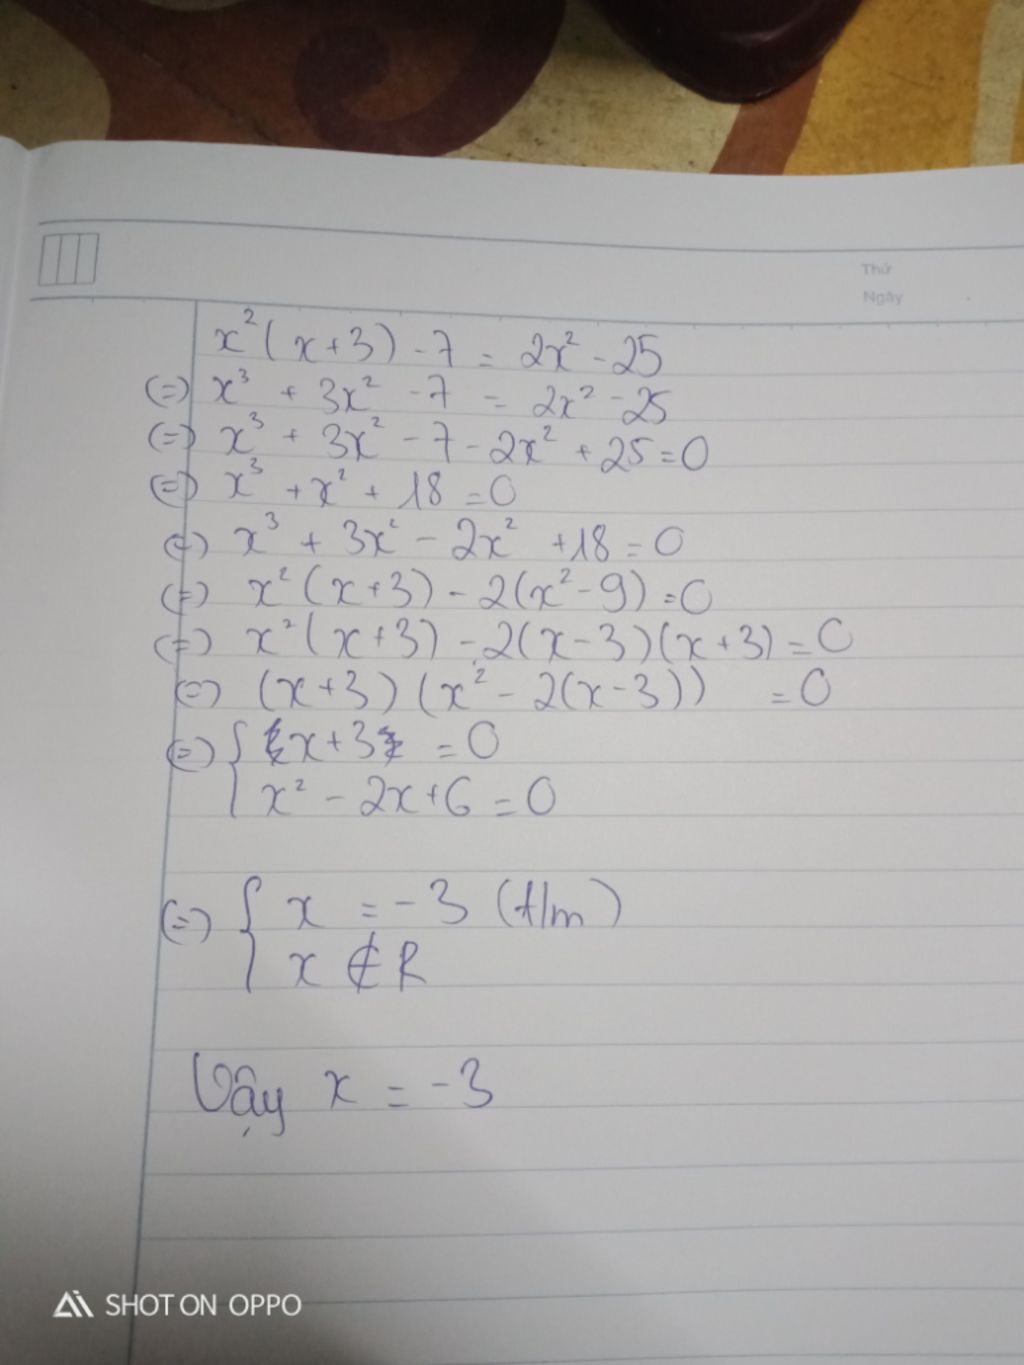 Thứ
Ngày
x²(x+3) -7 = 2x² -25
(=) x³ + 3x² -7 = 2x² -25
(=) x³ + 3x² -7 -2x² +25=0
(=) x³ +x² + 18 =0
(=) x³ + 3x² - 2x² +18=0
(=) x²(x+3) -2(x²-9)=0
(=) x²(x+3) -2(x-3)(x+3)=0
(=) (x+3)(x² - 2(x-3)) =0
(=) { x+3 =0
x² - 2x+6 =0
(=) { x = -3 (t/m)
x ∉ R
Vậy x = -3
SHOT ON OPPO